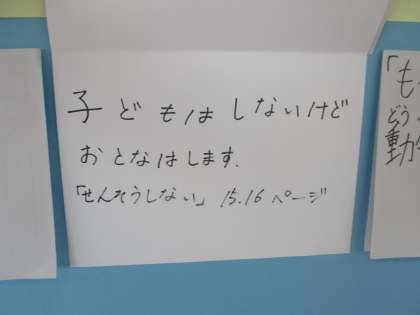 子どもはしないけど
おとなはします.
「せんそうしない」 15.16 ページ
「も
どう
動